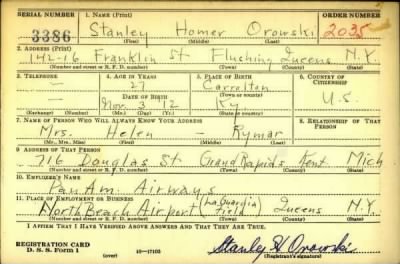 SERIAL NUMBER
1. NAME (Print)
ORDER NUMBER
3386
Stanley Homer Orowski
2035
(First) (Middle) (Last)
2. ADDRESS (Print)
142-16 Franklin St Flushing Queens N.Y.
(Number and street or R. F. D. number) (Town) (County) (State)
3. TELEPHONE
4. AGE IN YEARS
5. PLACE OF BIRTH
6. COUNTRY OF CITIZENSHIP
27
Carrolton
DATE OF BIRTH
(Town or county)
Nov. 3 12
Ky
U.S.
(Exchange) (Number)
(Mo.) (Day) (Yr.)
(State or country)
7. NAME OF PERSON WHO WILL ALWAYS KNOW YOUR ADDRESS
8. RELATIONSHIP OF THAT PERSON
Mrs. Helen – Rymar
(Mr., Mrs., Miss) (First) (Middle) (Last)
9. ADDRESS OF THAT PERSON
716 Douglas St. Grand Rapids Kent Mich
(Number and street or R. F. D. number) (Town) (County) (State)
10. EMPLOYER'S NAME
Pan Am. Airways
11. PLACE OF EMPLOYMENT OR BUSINESS
North Beach Airport (La Guardia Field) Queens N.Y.
(Number and street or R. F. D. number) (Town) (County) (State)
I AFFIRM THAT I HAVE VERIFIED ABOVE ANSWERS AND THAT THEY ARE TRUE.
REGISTRATION CARD
D. S. S. Form 1
(over)
16—17105
Stanley H Orowski
(Registrant's signature)